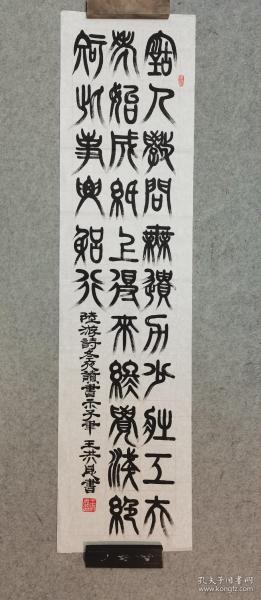 古人學問無遺力少壯工夫
老始成紙上得來終覺淺絕
知此事要躬行
陸游詩冬夜讀書示子聿 王洪書
孔夫子旧书网
www.kongfz.com